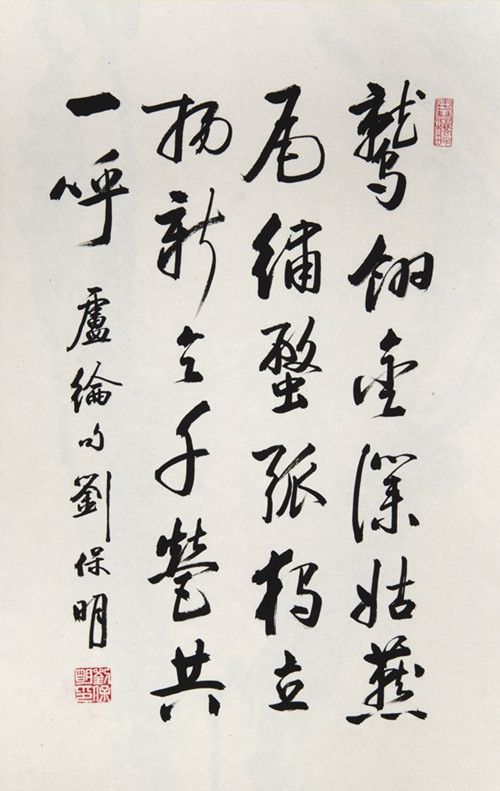 鷲翎金僕姑燕
尾繡蝥弧獨立
揚新令千營共
一呼 盧綸句 劉保明
劉保明印